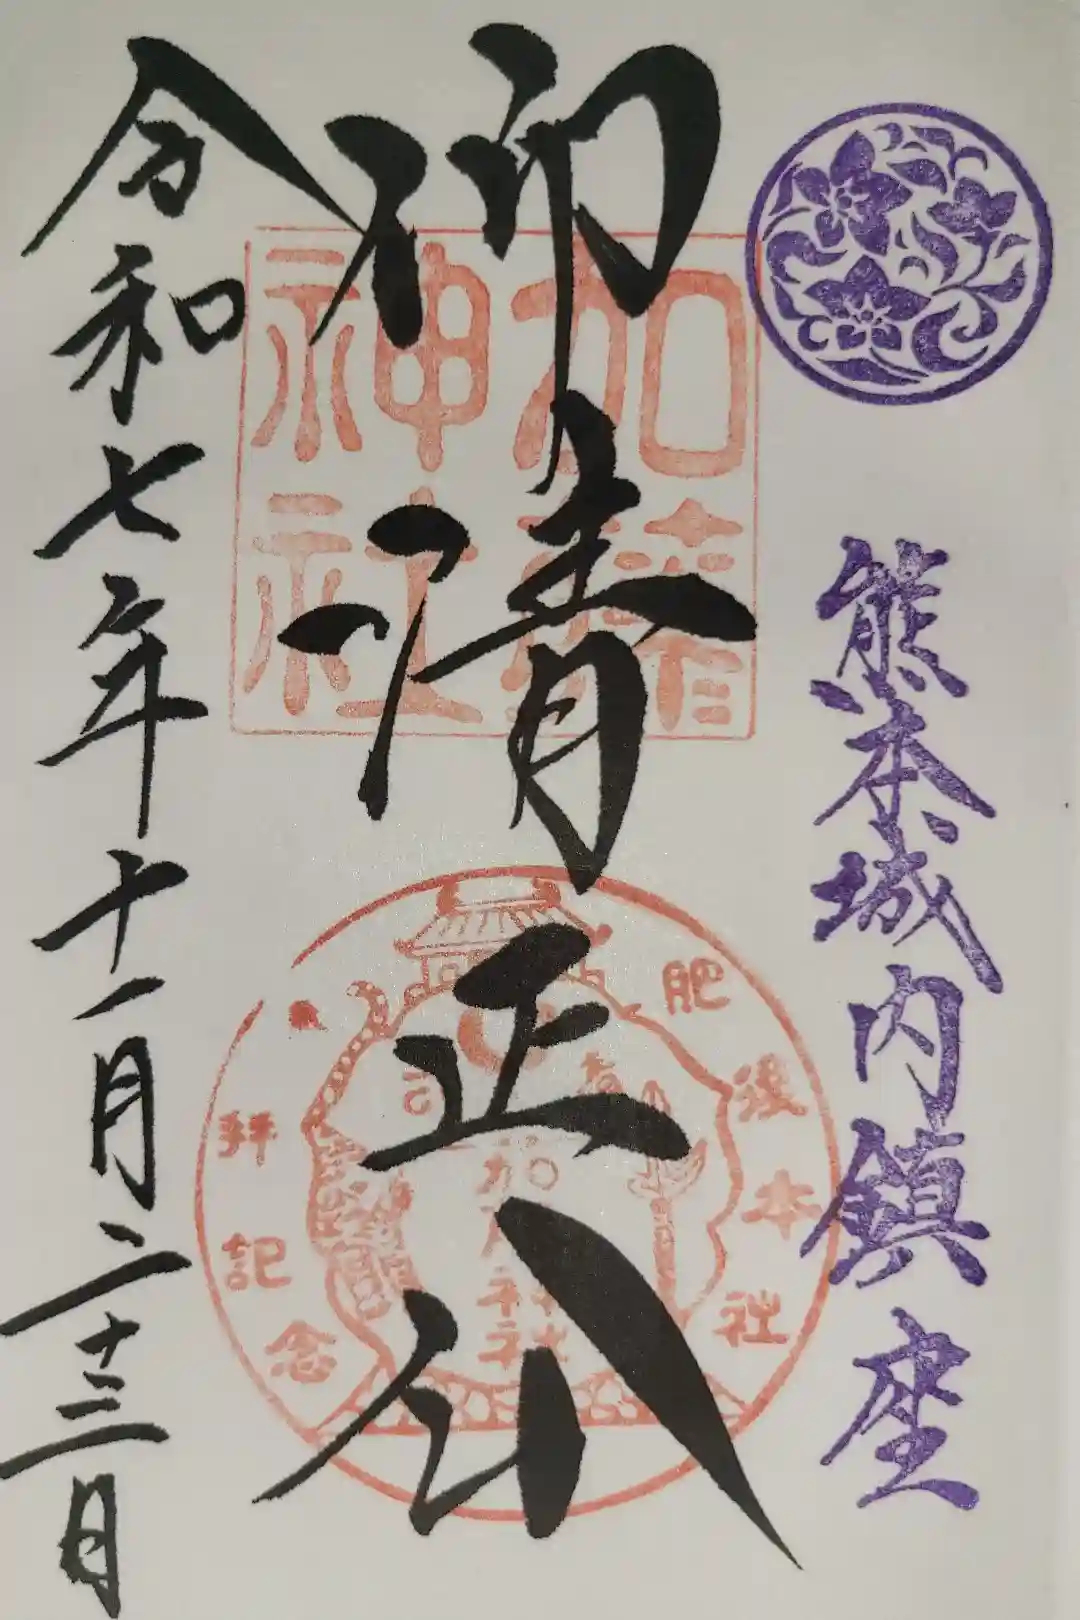 熊本城内鎮座
仰清正公
令和七年十一月二十三日
加藤
神社
肥後本社
拝記念
加藤神社